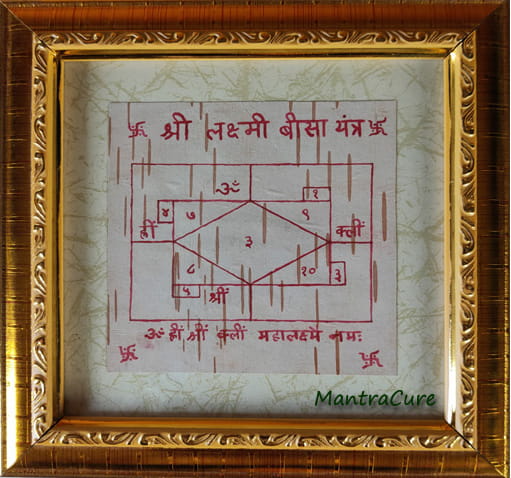 श्री लक्ष्मी बीसा यंत्र
ॐ १
४ ७ ९
ह्रीं ३ क्लीं
८ १० ३
५ श्रीं
ॐ ह्रीं श्रीं क्लीं महालक्ष्मै नमः
MantraCure